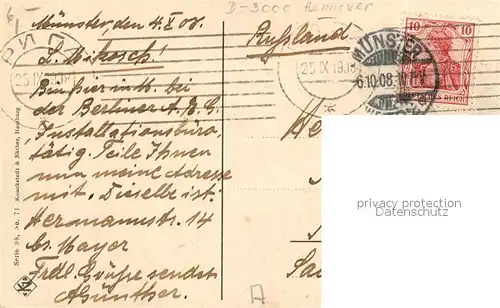 6,-
D-3000 Hannover
Münster, den 4.X 08.
Rußland
L. Mikosch!
Bin hier im b. bei
der Berliner A. E. G.
Installationsbüro,
tätig. Teile Ihnen
nun meine Adresse
mit. Dieselbe ist:
Hermannstr. 14
bs. Mayer
Frdl. Grüße sendet
A Günther.
РИГ
25 IX 1908
25 IX 190
MÜNSTER
6.10.08
10
10
DEUTSCHES REICH
He
Serie 98, No. 71 Knackstedt & Näther, Hamburg
privacy protection
Datenschutz
A